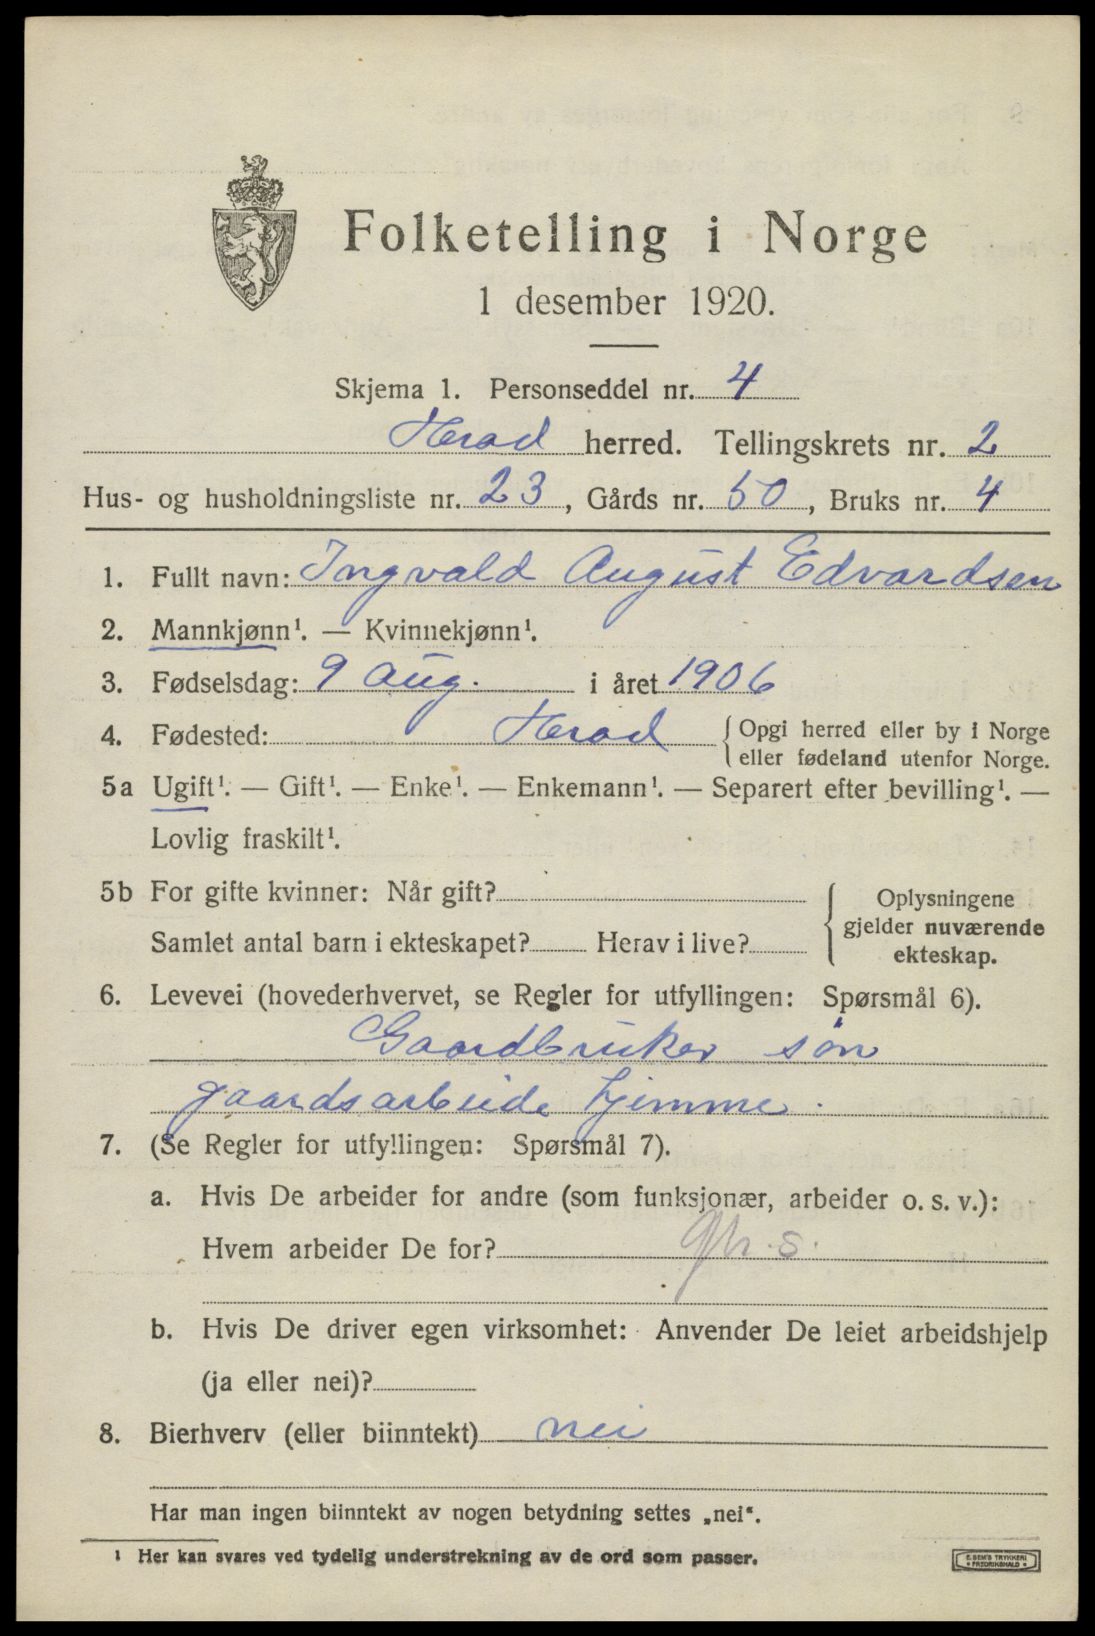 Folketelling i Norge
1 desember 1920.
Skjema 1. Personseddel nr. 4
Herad herred. Tellingskrets nr. 2
Hus- og husholdningsliste nr. 23, Gårds nr. 50, Bruks nr. 4
1. Fullt navn: Ingvald August Edvardsen
2. Mannkjønn¹. — Kvinnekjønn¹.
3. Fødselsdag: 9 Aug. i året 1906
4. Fødested: Herad { Opgi herred eller by i Norge
eller fødeland utenfor Norge.
5a Ugift¹. — Gift¹. — Enke¹. — Enkemann¹. — Separert efter bevilling¹. —
Lovlig fraskilt¹.
5b For gifte kvinner: Når gift?
Samlet antal barn i ekteskapet? Herav i live?
Oplysningene
gjelder nuværende
ekteskap.
6. Levevei (hovederhvervet, se Regler for utfyllingen: Spørsmål 6).
Gaardbruker søn
gaardsarbeide hjemme.
7. (Se Regler for utfyllingen: Spørsmål 7).
a. Hvis De arbeider for andre (som funksjonær, arbeider o. s. v.):
Hvem arbeider De for? gbr. s.
b. Hvis De driver egen virksomhet: Anvender De leiet arbeidshjelp
(ja eller nei)?
8. Bierhverv (eller biinntekt) nei
Har man ingen biinntekt av nogen betydning settes „nei“.
¹ Her kan svares ved tydelig understrekning av de ord som passer.
E. SEM'S TRYKKERI
FREDRIKSHALD